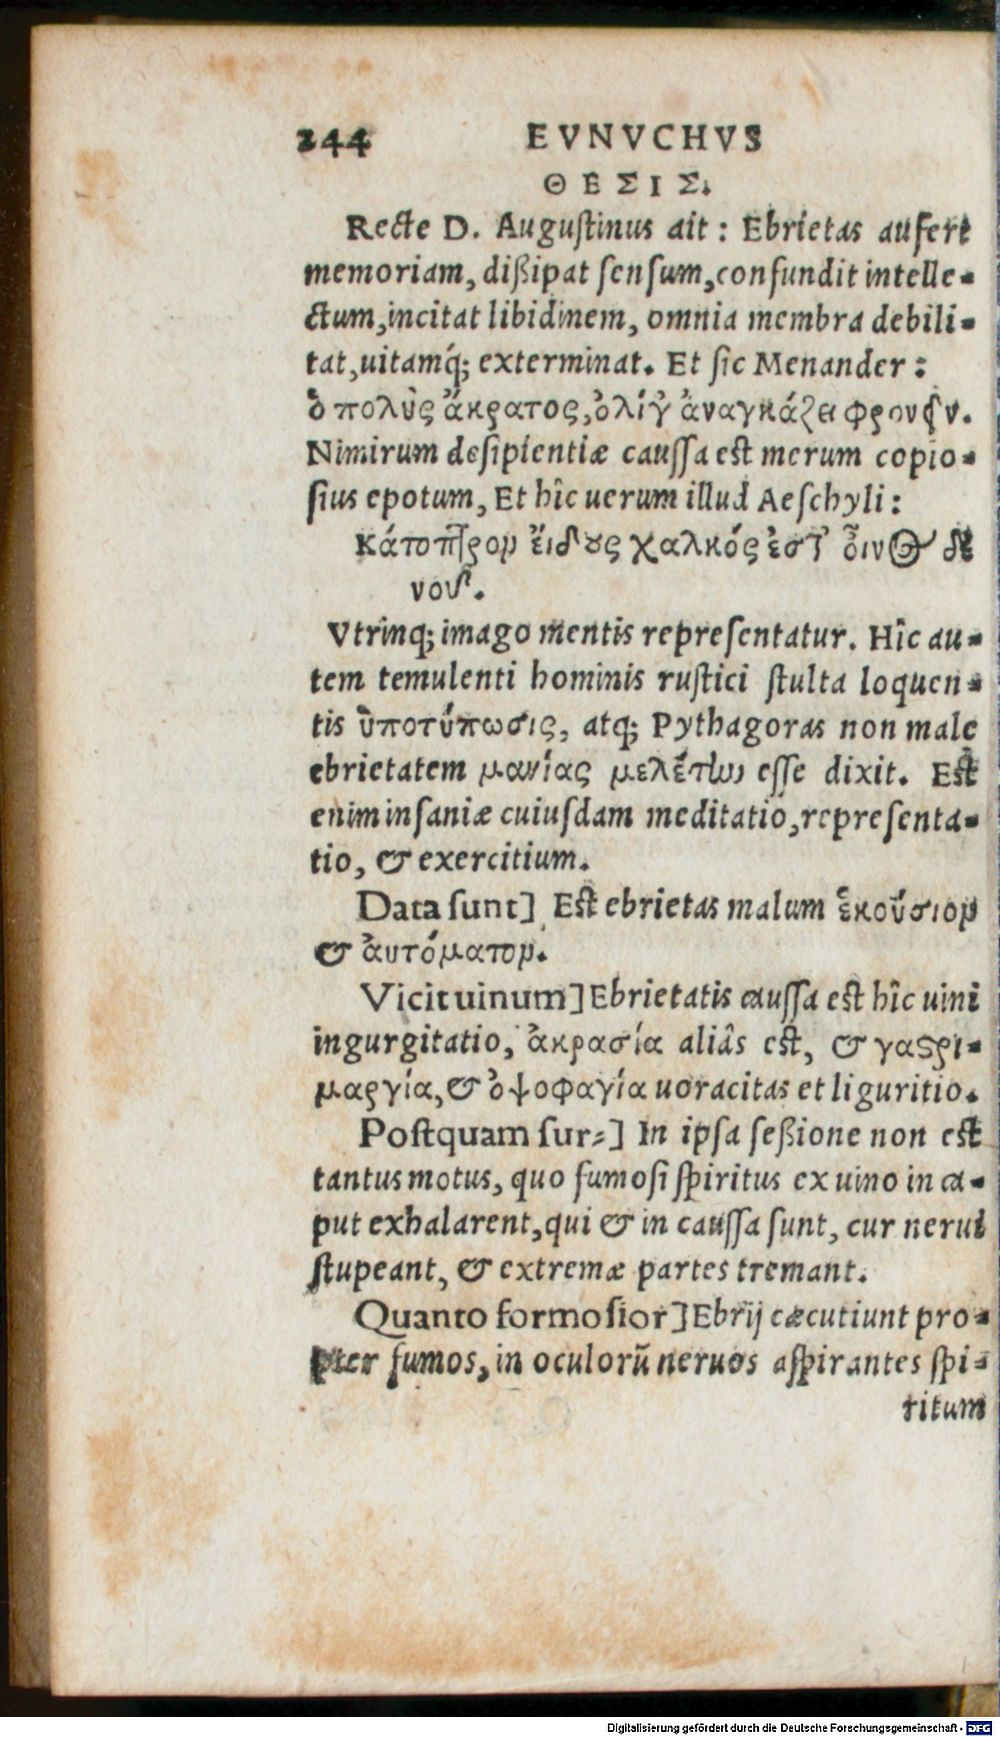 244 EVNVCHVS
ΘΕΣΙΣ.
Recte D. Augustinus ait: Ebrietas aufert
memoriam, dißipat sensum, confundit intelle-
ctum, incitat libidinem, omnia membra debili-
tat, uitamq́; exterminat. Et sic Menander:
ὁ πολὺς ἄκρατος, ὀλίγ' ἀναγκάζει φρονεῖν.
Nimirum desipientiæ caussa est merum copio-
sius epotum, Et hîc uerum illud Aeschyli:
Κάτοπτρον εἴδους χαλκός ἐστ' οἶνος δὲ
νοῦ.
Vtrinq; imago mentis representatur. Hîc au-
tem temulenti hominis rustici stulta loquen-
tis ὑποτύπωσις, atq; Pythagoras non male
ebrietatem μανίας μελέτην esse dixit. Est
enim insaniæ cuiusdam meditatio, representa-
tio, & exercitium.
Data sunt] Est ebrietas malum ἑκούσιον
& ἀυτόματον.
Vicit uinum] Ebrietatis caussa est hîc uini
ingurgitatio, ἀκρασία aliâs est, & γαςρι-
μαργία, & ὀψοφαγία uoracitas et liguritio.
Postquam sur-] In ipsa seßione non est
tantus motus, quo fumosi spiritus ex uino in ca-
put exhalarent, qui & in caussa sunt, cur nerui
stupeant, & extremæ partes tremant.
Quanto formosior] Ebrij cæcutiunt pro-
pter fumos, in oculorũ neruos aspirantes spi-
ritum
Digitalisierung gefördert durch die Deutsche Forschungsgemeinschaft - DFG